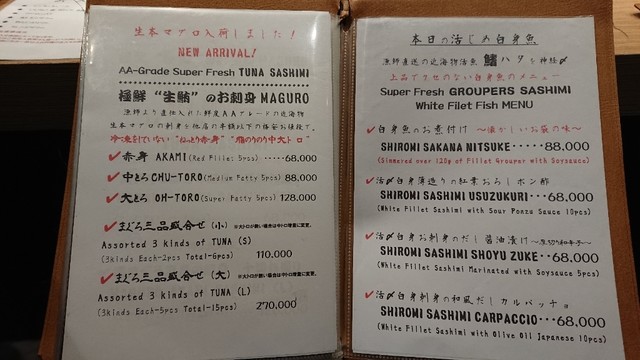 生本マグロ入荷しました！
NEW ARRIVAL!
AA-Grade Super Fresh TUNA SASHIMI
極鮮 “生鮪” のお刺身 MAGURO
漁師より直仕入れた鮮度AAグレードの近海物
生本マグロの刺身を他店の半額以下の格安お値段で。
冷凍をしていない“ねっとり赤身” “脂のりのり中大トロ”
✓赤身 AKAMI (Red Fillet 5pcs)·····68,000
✓中とろ CHU-TORO (Medium Fatty 5pcs) 88,000
✓大とろ OH-TORO (Super Fatty 5pcs) 128,000
✓まぐろ三品盛合せ (小)
Assorted 3 kinds of TUNA (S)
(3kinds Each-2pcs Total-6pcs) 110,000
✓まぐろ三品盛合せ (大)
Assorted 3 kinds of TUNA (L)
(3kinds Each-5pcs Total-15pcs) 270,000
本日の活〆め白身魚
漁師直送の近海物活魚 鱰 ハタを神経〆
上品でクセのない白身魚のメニュー
Super Fresh GROUPERS SASHIMI
White Filet Fish MENU
✓白身魚のお煮付け ～懐かしいお袋の味～
SHIROMI SAKANA NITSUKE·····88,000
(Simmered over 120g of Fillet Grouper with Soysauce)
✓活〆白身薄造りの紅葉おろしポン酢
SHIROMI SASHIMI USUZUKURI···68,000
(White Fillet Sashimi with Sour Ponzu Sauce 10pcs)
✓活〆白身お刺身のだし醤油漬け
SHIROMI SASHIMI SHOYU ZUKE···68,000
(White Fillet Sashimi Marinated with Soysauce 5pcs)
✓活〆白身刺身の和風だしカルパッチョ
SHIROMI SASHIMI CARPACCIO···68,000
(White Fillet Sashimi with Olive Oil Japanese 10pcs)